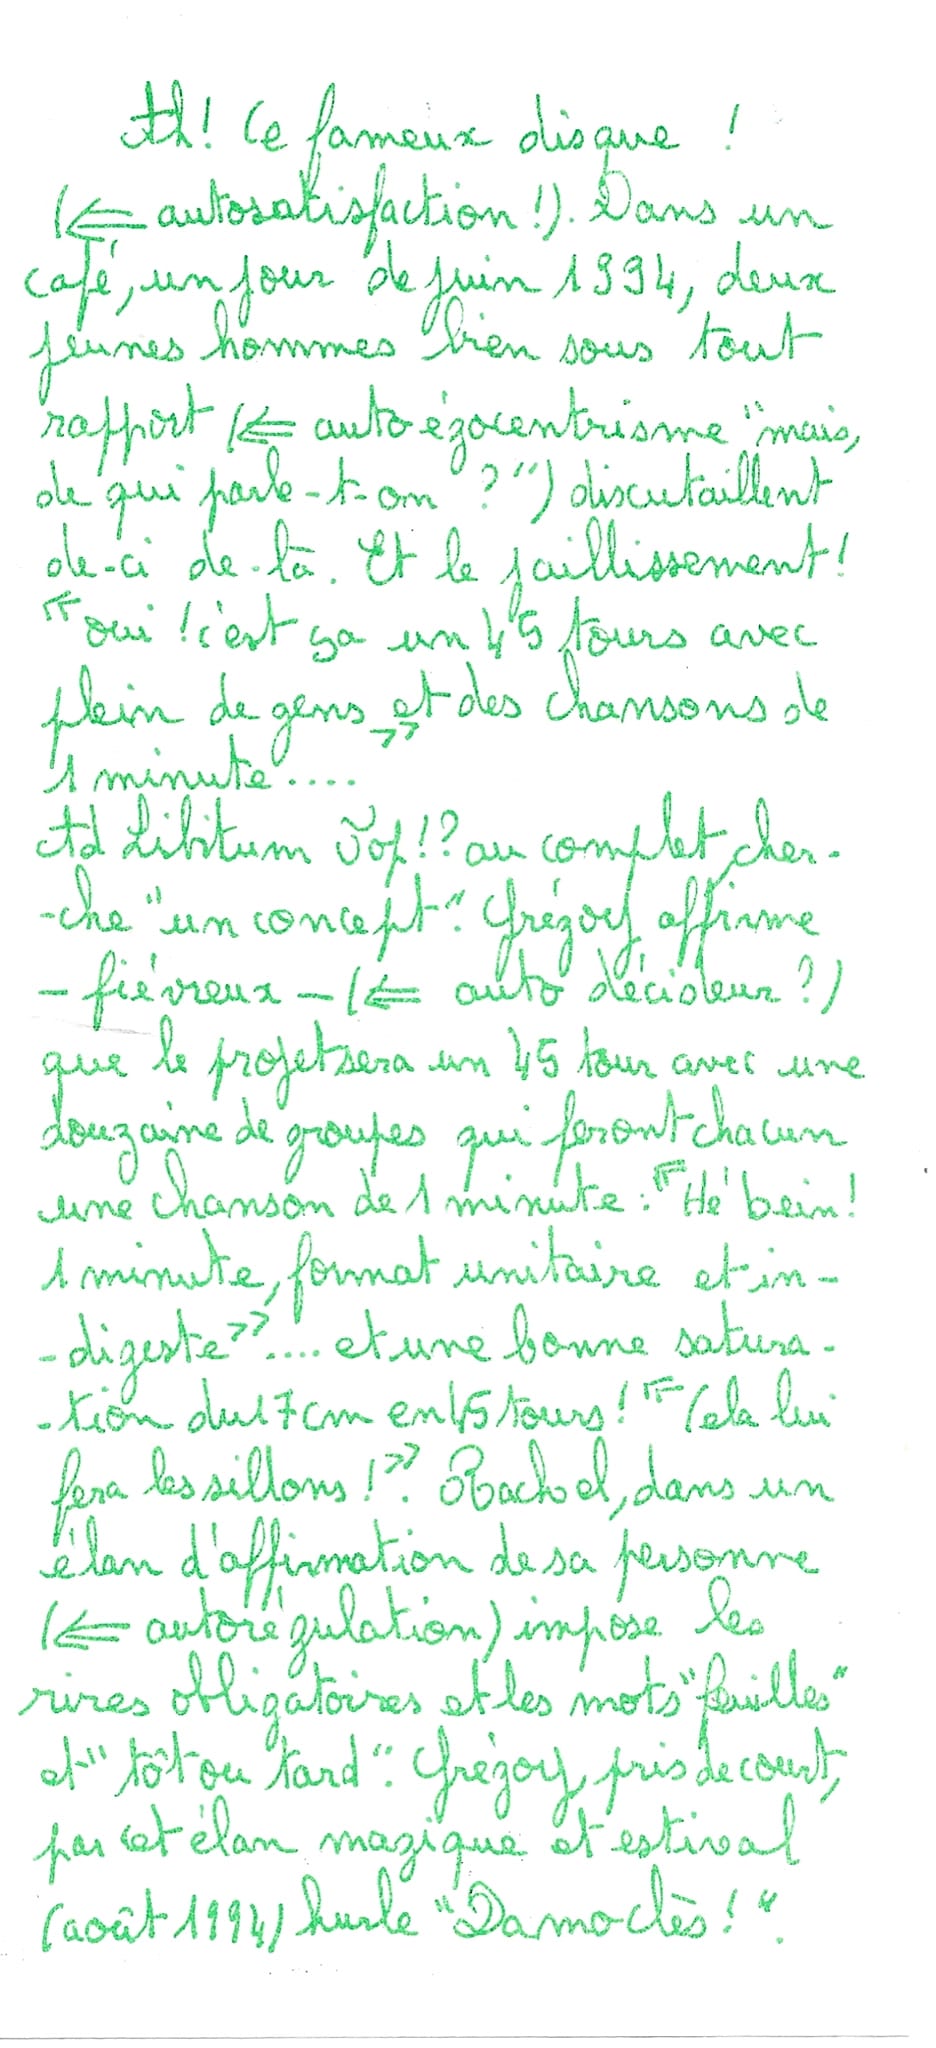 Ah! Ce fameux disque !
(⇐ autosatisfaction!). Dans un
café, un jour de juin 1994, deux
jeunes hommes bien sous tout
rapport (⇐ auto égocentrisme "mais,
de qui parle-t-on ?") discutaillent
de-ci de-là. Et le jaillissement!
«oui ! c'est ça un 45 tours avec
plein de gens et des chansons de
1 minute....»
Ad Libitum Top!? au complet, cher-
-che "un concept". Grégory affirme
- fiévreux - (⇐ auto décideur?)
que le projet sera un 45 tour avec une
douzaine de groupes qui feront chacun
une chanson de 1 minute : «Hé bein!
1 minute, format unitaire et in-
-digeste».... et une bonne satura-
-tion du 17cm en 45 tours! «Cela lui
fera les sillons!». Rachel, dans un
élan d'affirmation de sa personne
(⇐ autorégulation) impose les
rires obligatoires et les mots "feuilles"
et "tôt ou tard". Grégory, pris de court,
par cet élan magique et estival
(août 1994) hurle "Damoclès!".